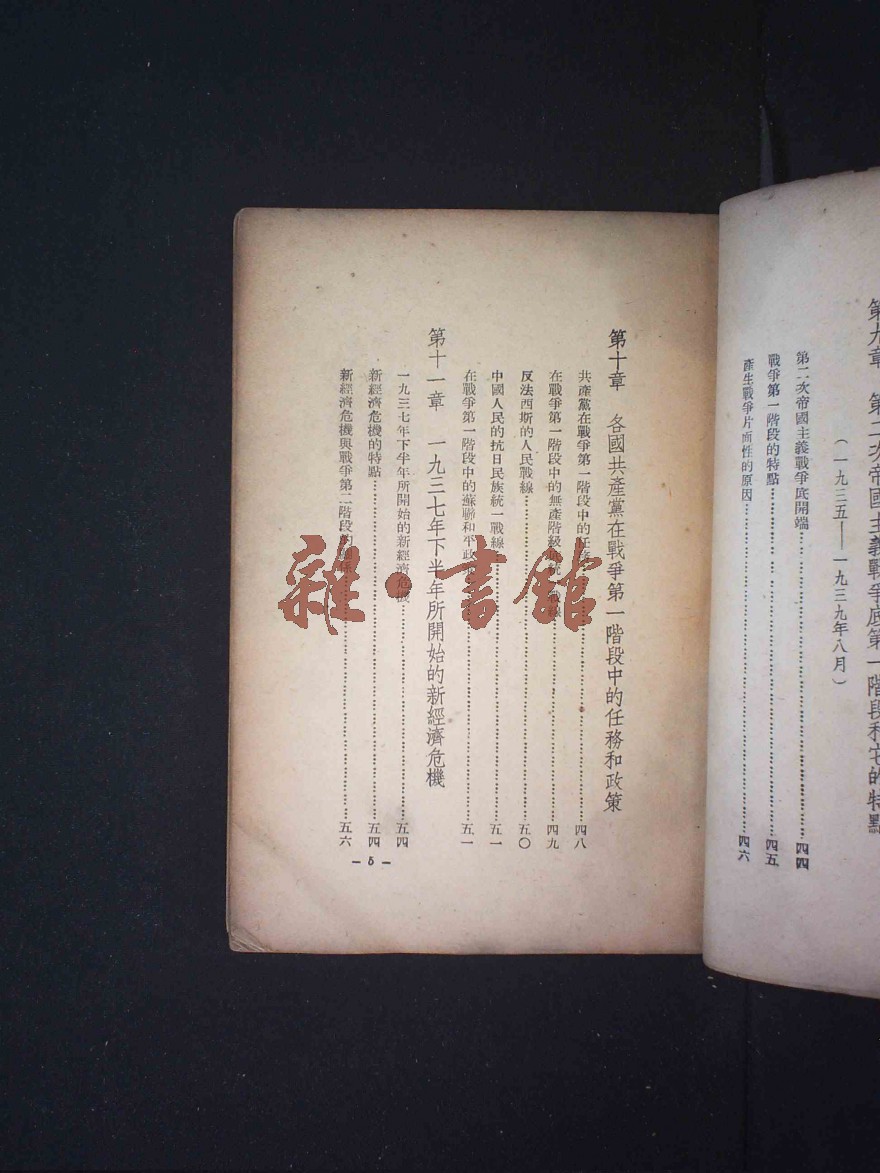 第九章　第二次帝國主義戰爭底第一階段和它的特點
（一九三五——一九三九年八月）
第二次帝國主義戰爭底開端……四四
戰爭第一階段的特點……四五
產生戰爭片面性的原因……四六
第十章　各國共產黨在戰爭第一階段中的任務和政策
共產黨在戰爭第一階段中的任務……四八
在戰爭第一階段中的無產階級底統一戰線……四九
反法西斯的人民戰線……五〇
中國人民的抗日民族統一戰線……五一
在戰爭第一階段中的蘇聯和平政策……五一
第十一章　一九三七年下半年所開始的新經濟危機
一九三七年下半年所開始的新經濟危機……五四
新經濟危機的特點……五四
新經濟危機與戰爭第二階段的關係……五六
— 5 —
雜·書館